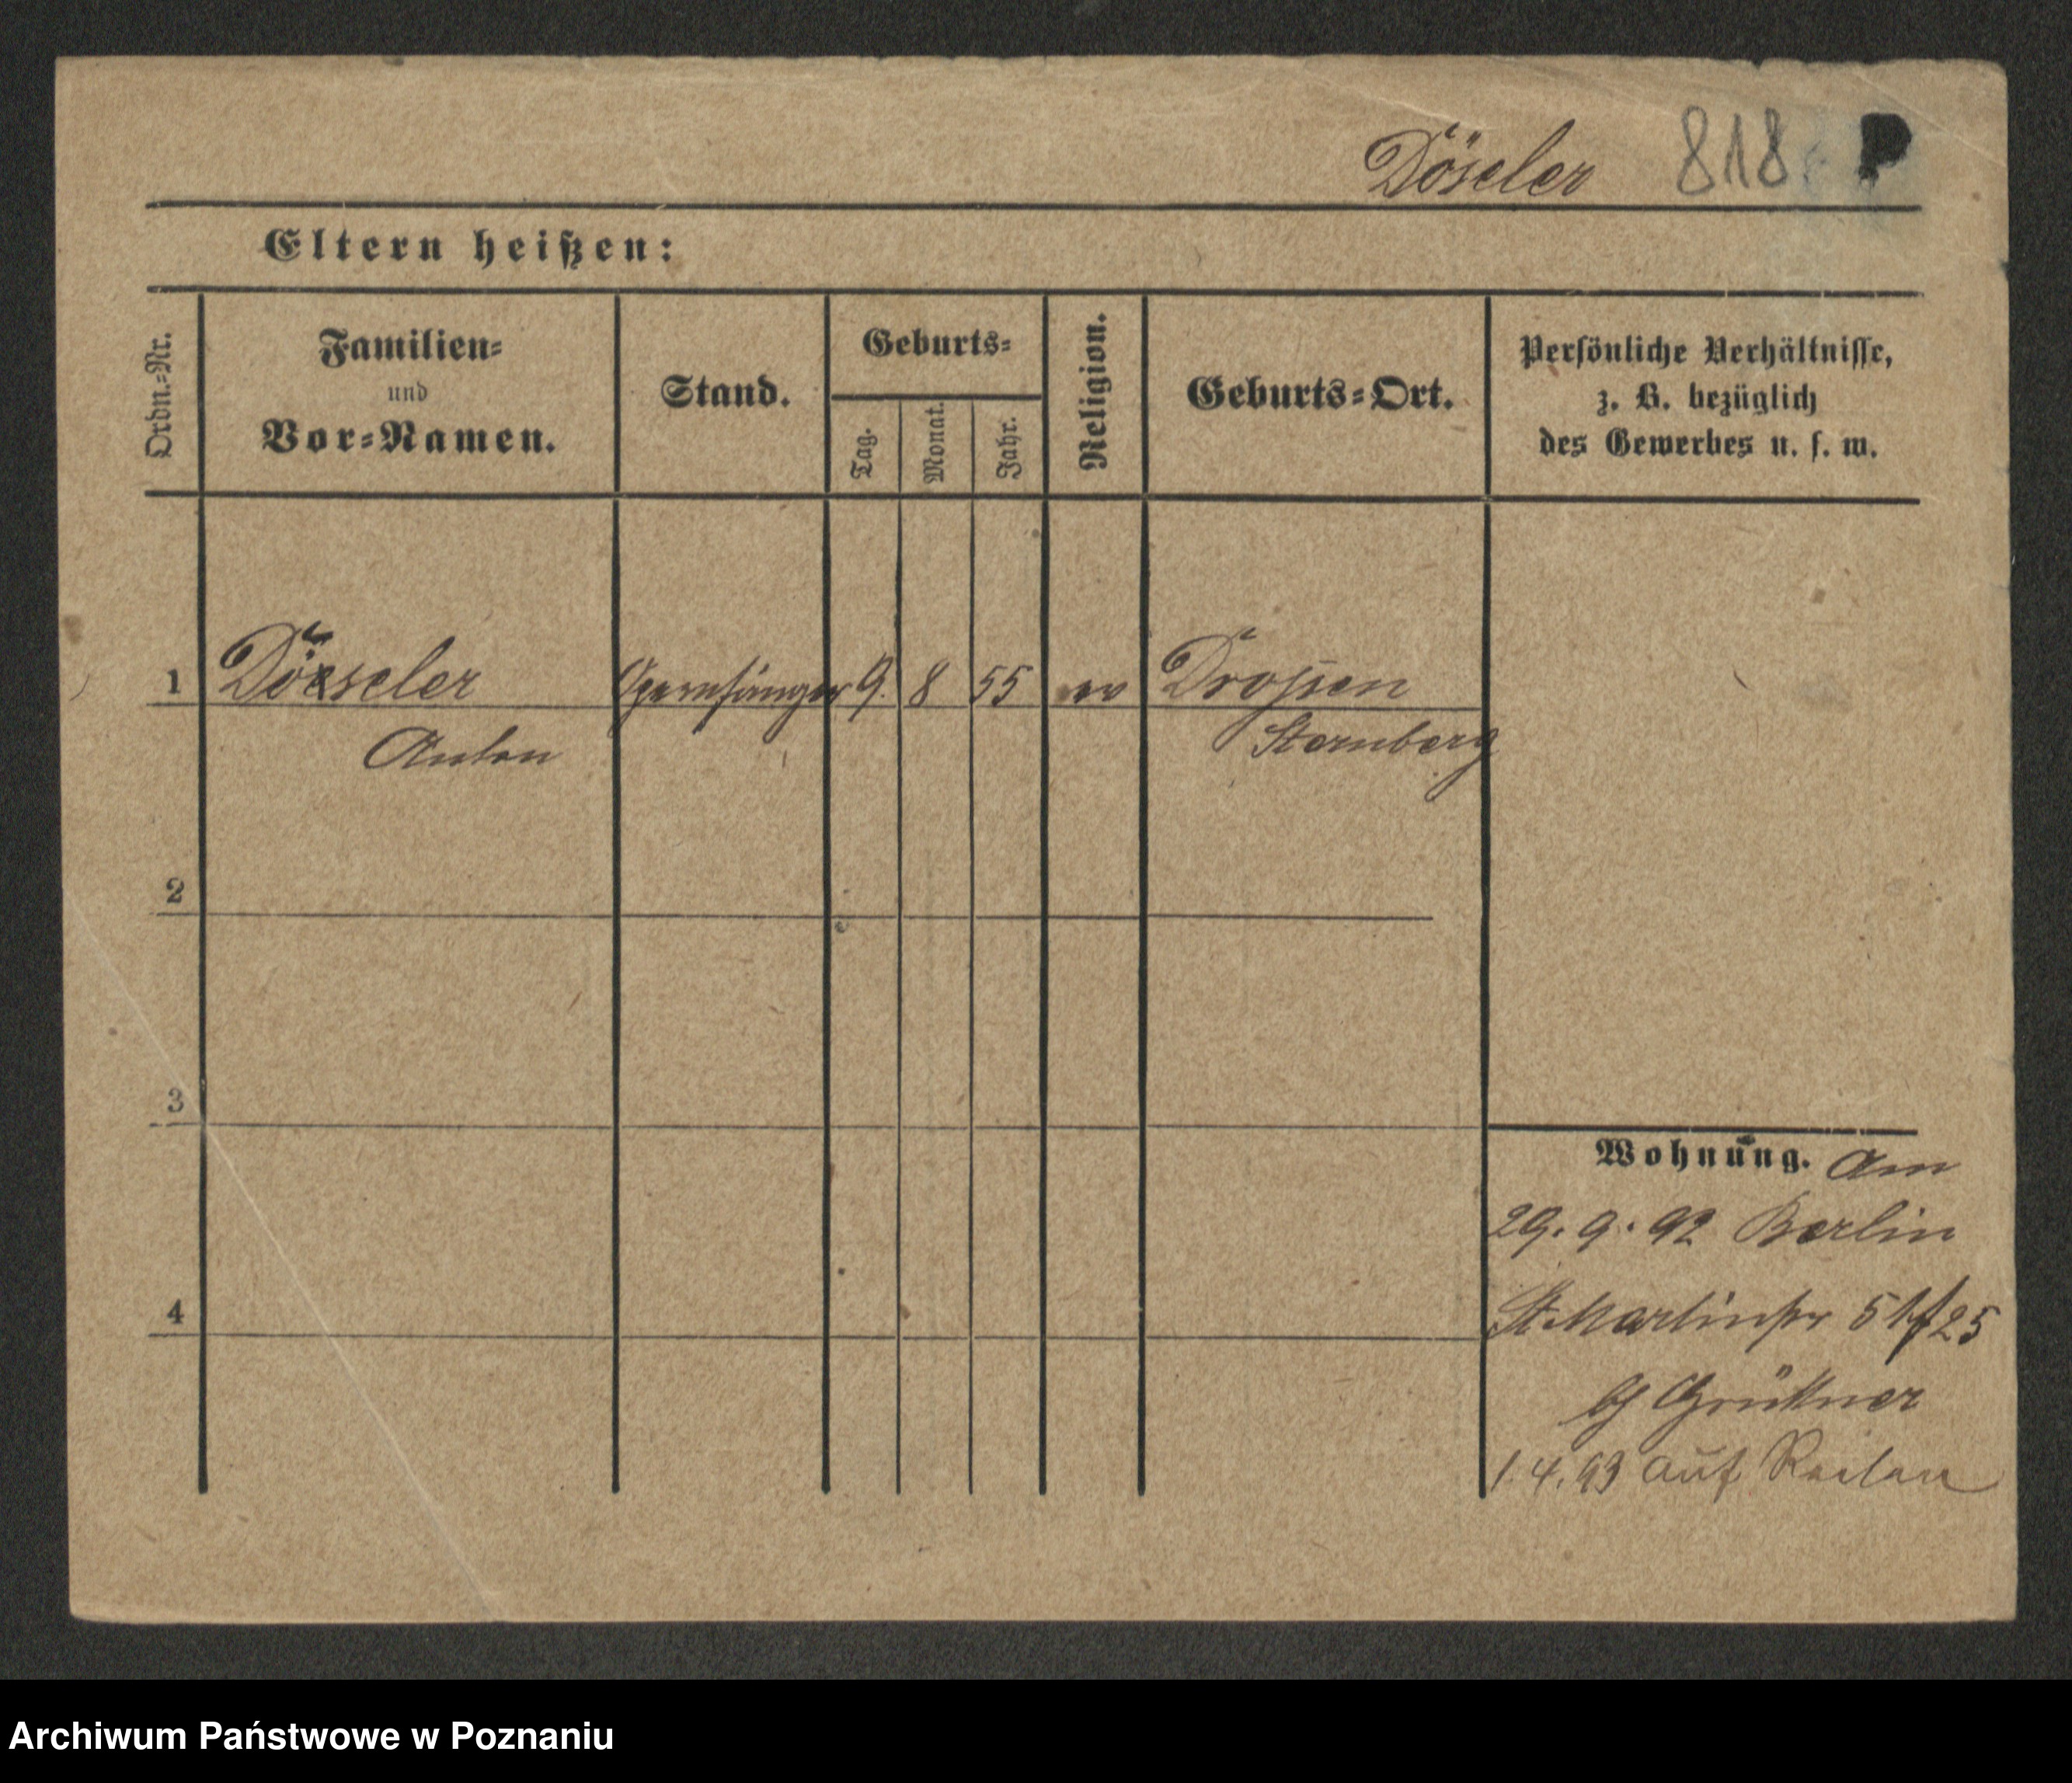 Döseler 818
Eltern heißen:
Ordn.-Nr.
Familien-
und
Vor-Namen.
Stand.
Geburts-
Tag.
Monat.
Jahr.
Religion.
Geburts-Ort.
Persönliche Verhältnisse,
z. B. bezüglich
des Gewerbes u. s. w.
1 Döeseler Opernsänger 9. 8 55 ev Drossen
Anton Sternberg
2
3
4
Wohnung. Am
29. 9. 92 Berlin
St. Martinstr 51 25
Grüttner
1. 4. 93 auf Reisen
Archiwum Państwowe w Poznaniu